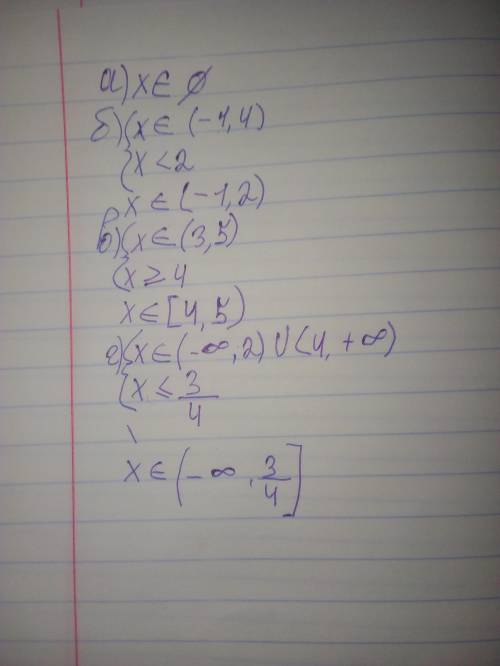 а) x ∈ ∅
б) { x ∈ (-1, 4)
{ x < 2
x ∈ (-1, 2)
в) { x ∈ (3, 5)
{ x ≥ 4
x ∈ [4, 5)
г) { x ∈ (-∞, 2) ∪ (4, +∞)
{ x ≤ 3/4
x ∈ (-∞, 3/4]